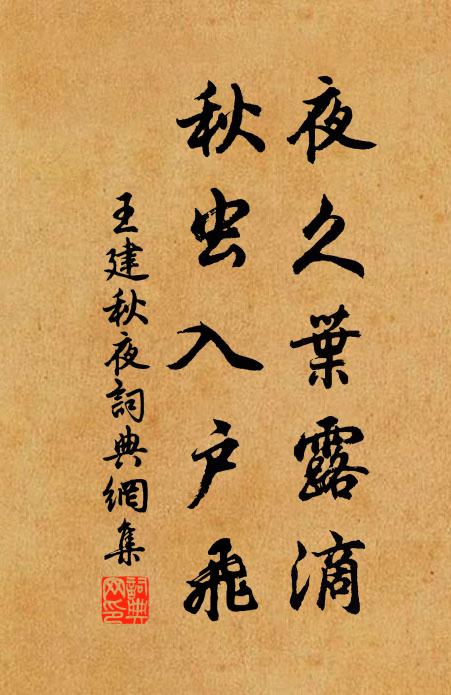 夜久葉露滴
秋虫入户飛
王建秋夜詞典網集
詞典網印